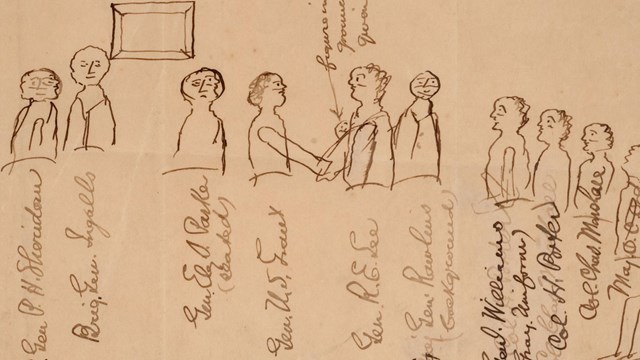 Gen P. H. Sheridan
Brig. Gen. Ingalls
Gen. Ely S. Parker
(seated)
Gen. U. S. Grant
figure in
Gen. R. E. Lee
Gen Rawlins
(background)
Williams
Gray, Uniform)
Col. H. Porter
Col. Chas. Marshall
Maj